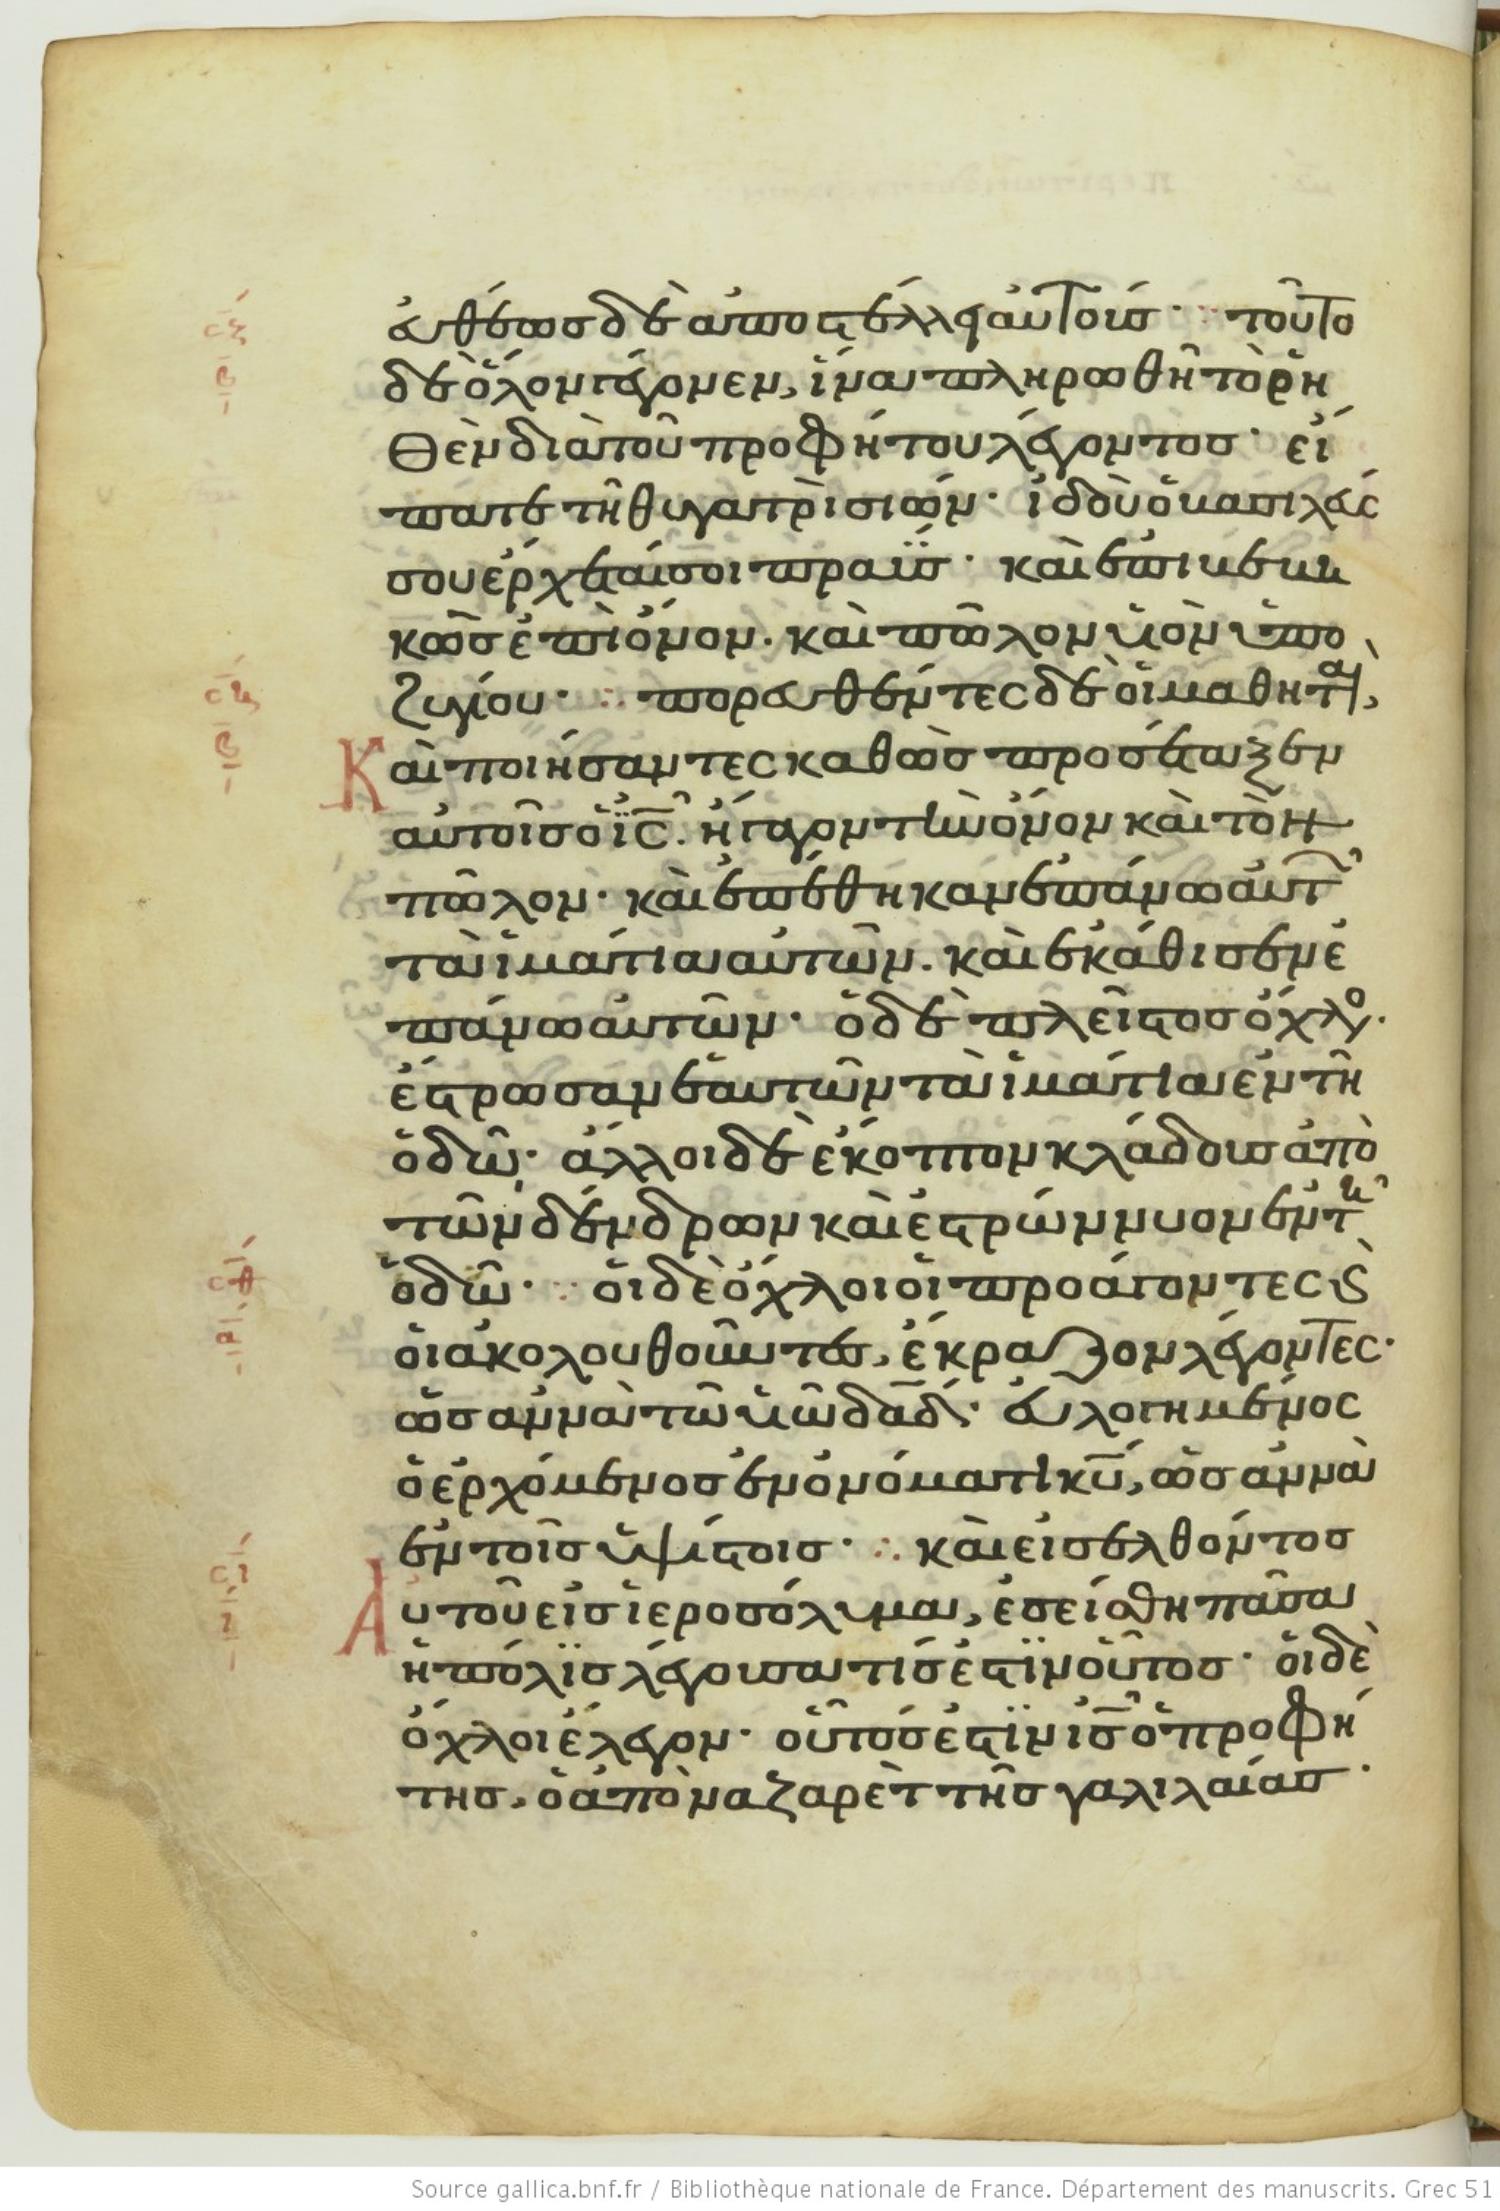 εὐθέως δὲ ἀποστέλλει αὐτούς· τοῦτο
δὲ ὅλον γέγονεν, ἵνα πληρωθῆ τὸ ῥη
θὲν διὰ τοῦ προφήτου λέγοντος· εἴ
πατε τῆ θυγατρὶ σιών· ἰδοὺ ὁ βασιλεύς
σου ἔρχεταί σοι πραΰς· καὶ ἐπιβεβη
κὼς ἐπὶ ὄνον. καὶ πῶλον υἱὸν ὑπο
ζυγίου· πορευθέντες δὲ οἱ μαθηταὶ,
Καὶ ποιήσαντες καθὼς προσέταξεν
αὐτοῖς ὁ ις̅. ἤγαγον τὴν ὄνον καὶ τὸν
πῶλον· καὶ ἐπέθηκαν ἐπάνω αὐτῶν
τὰ ἱμάτια αὐτῶν. καὶ ἐκάθισεν ἐ
πάνω αὐτῶν· ὁ δὲ πλεῖστος ὄχλος.
ἔστρωσαν ἑαυτῶν τὰ ἱμάτια ἐν τῆ
ὁδῶ· ἄλλοι δὲ ἔκοπτον κλάδους ἀπὸ
τῶν δένδρων καὶ ἐστρώννυον ἐν τῆ
ὁδῶ· οἱ δὲ ὄχλοι οἱ προάγοντες ϗ
οἱ ἀκολουθοῦντες, ἔκραζον λέγοντες·
ὡσαννὰ τῶ υἱῶ δαδ̅· εὐλογημένος
ὁ ἐρχόμενος ἐν ὀνόματι κυ̅, ὡσαννὰ
ἐν τοῖς ὑψίστοις· καὶ εἰσελθόντος
Αὐτοῦ εἰς ἱεροσόλυμα, ἐσείσθη πᾶσα
ἡ πόλϊς λέγουσα τίς ἐστϊν οὗτος· οἱ δὲ
ὄχλοι ἔλεγον· οὗτός ἐστϊν ις̅ ὁ προφή
της, ὁ ἀπὸ ναζαρὲτ τῆς γαλιλαίας·
Source gallica.bnf.fr / Bibliothèque nationale de France. Département des manuscrits. Grec 51